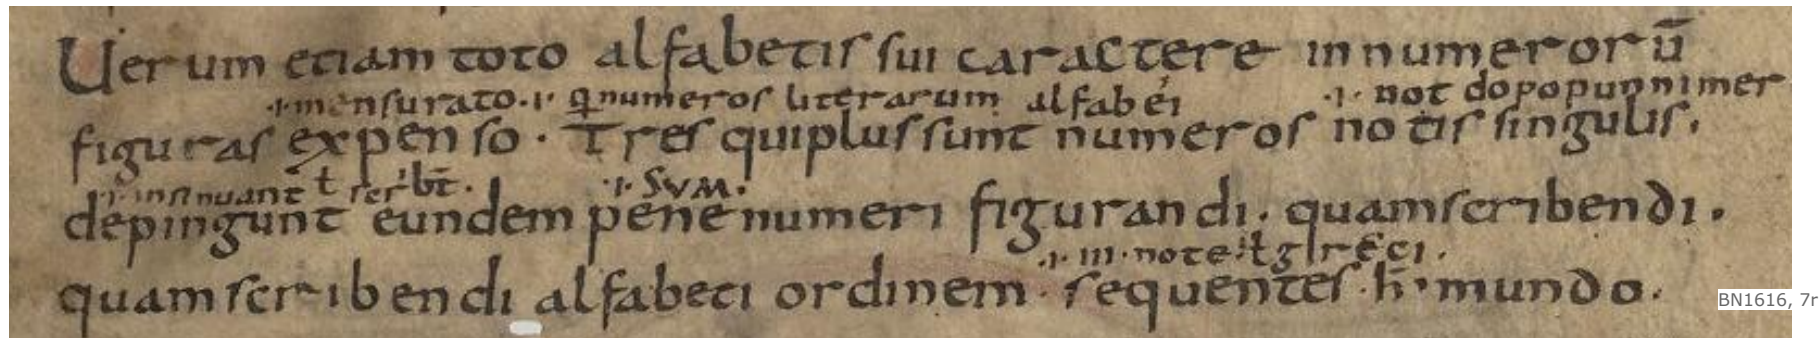 Uerum etiam toto alfabetis sui caractere in numerorū
.i. mensurato .i. qꝫ numeros literarum alfabeti .i. not do popunnimer
figuras expenso . Tres qui plus sunt numeros notis singulis .
.i. insinuant ł scribt̄ . .i. SUM .
depingunt eundem pene numeri figurandi . quam scribendi .
.i. III. note ł greci .
quam scribendi alfabeti ordinem . sequentes . h̄ . mundo .
BN1616, 7r